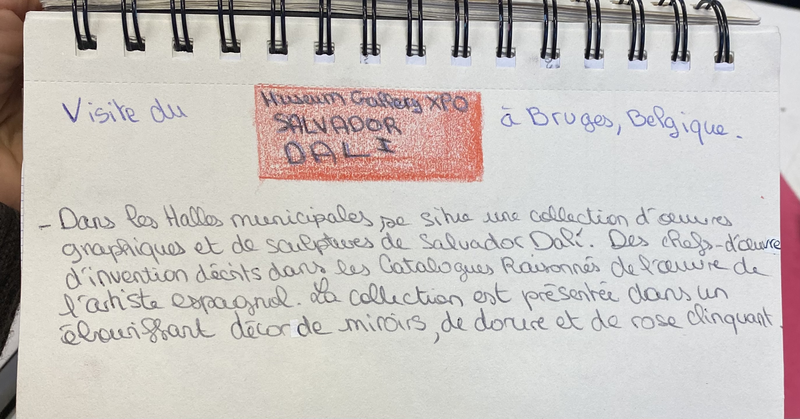 Visite du
Museum Gallery XPO
SALVADOR
DALI
à Bruges, Belgique.
- Dans les Halles municipales se situe une collection d'œuvres
graphiques et de sculptures de Salvador Dalí. Des chefs-d'œuvre
d'invention décrits dans les Catalogues Raisonnés de l'œuvre de
l'artiste espagnol. La collection est présentée dans un
éblouissant décor de miroirs, de dorure et de rose clinquant.